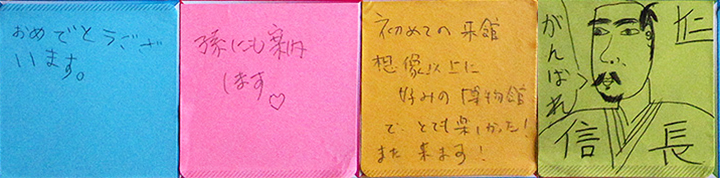 おめでとうござ
います。
孫にも
します♡
初めての来館
想像以上に
好みの博物館
で とても楽しかった!
また来ます!
がんばれ
信長